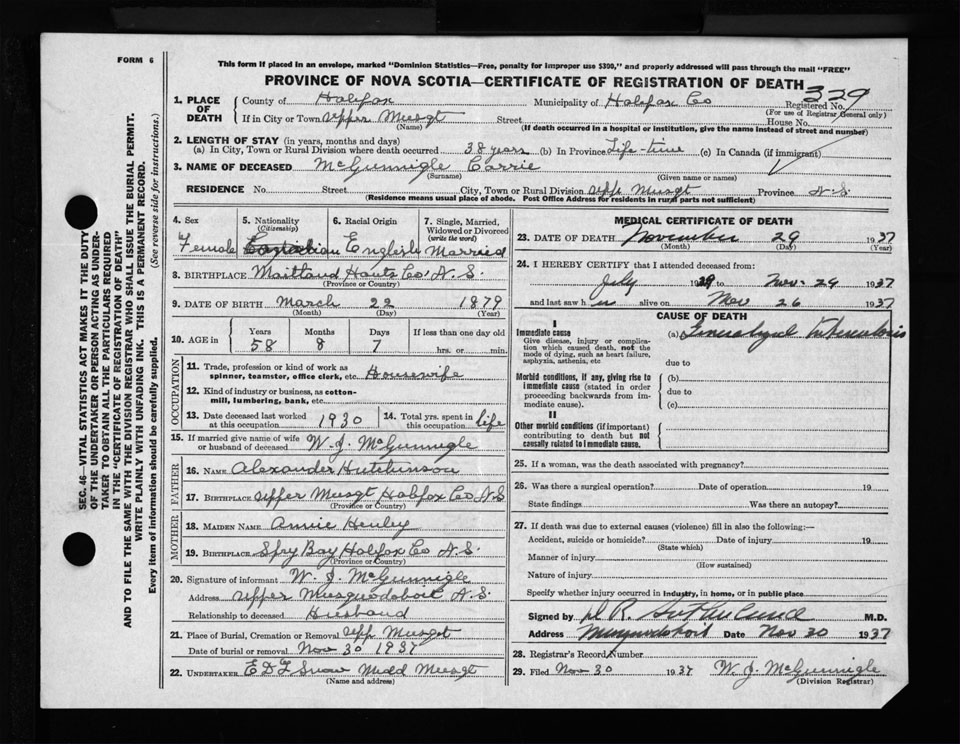 FORM 6
This form if placed in an envelope, marked "Dominion Statistics—Free, penalty for improper use $300," and properly addressed will pass through the mail "FREE"
PROVINCE OF NOVA SCOTIA—CERTIFICATE OF REGISTRATION OF DEATH
329
1. PLACE OF DEATH
County of Halifax Municipality of Halifax Co Registered No.
(For use of Registrar General only)
If in City or Town Upper Musqt Street House No.
(Name) (If death occurred in a hospital or institution, give the name instead of street and number)
2. LENGTH OF STAY (in years, months and days)
(a) In City, Town or Rural Division where death occurred 38 years (b) In Province Life-time (c) In Canada (if immigrant)
3. NAME OF DECEASED McGunnigle Carrie
(Surname) (Given name or names)
RESIDENCE No. Street City, Town or Rural Division Upp Musqt Province N.S.
(Residence means usual place of abode. Post Office Address for residents in rural parts not sufficient)
4. Sex Female
5. Nationality (Citizenship) Canadian
6. Racial Origin English
7. Single, Married, Widowed or Divorced (write the word) Married
8. BIRTHPLACE Maitland Hants Co, N.S.
(Province or Country)
9. DATE OF BIRTH March 22 1879
(Month) (Day) (Year)
10. AGE in Years Months Days If less than one day old
58 8 7 hrs. or min.
OCCUPATION
11. Trade, profession or kind of work as spinner, teamster, office clerk, etc. Housewife
12. Kind of industry or business, as cotton-mill, lumbering, bank, etc.
13. Date deceased last worked at this occupation 1930
14. Total yrs. spent in this occupation life
15. If married give name of wife or husband of deceased W. J. McGunnigle
FATHER
16. NAME Alexander Hutchinson
17. BIRTHPLACE Upper Musqt Halifax Co N.S
(Province or Country)
MOTHER
18. MAIDEN NAME Annie Henley
19. BIRTHPLACE Spry Bay Halifax Co N.S.
(Province or Country)
20. Signature of informant W. J. McGunnigle
Address Upper Musquodoboit N.S.
Relationship to deceased Husband
21. Place of Burial, Cremation or Removal Upp Musqt
Date of burial or removal Nov 30 1937
22. UNDERTAKER E D F Snow Midd Musqt
(Name and address)
MEDICAL CERTIFICATE OF DEATH
23. DATE OF DEATH November 29 1937
(Month) (Day) (Year)
24. I HEREBY CERTIFY that I attended deceased from:
July 19 to Nov. 29 1937
and last saw h er alive on Nov 26 1937
CAUSE OF DEATH
I
Immediate cause
Give disease, injury or complication which caused death, not the mode of dying, such as heart failure, asphyxia, asthenia, etc
(a) Generalized Tuberculosis
due to
Morbid conditions, if any, giving rise to immediate cause (stated in order proceeding backwards from immediate cause).
(b)
due to
(c)
II
Other morbid conditions (if important) contributing to death but not causally related to immediate cause.
25. If a woman, was the death associated with pregnancy?
26. Was there a surgical operation? Date of operation 19
State findings Was there an autopsy?
27. If death was due to external causes (violence) fill in also the following:—
Accident, suicide or homicide? Date of injury 19
(State which)
Manner of injury
(How sustained)
Nature of injury
Specify whether injury occurred in Industry, in home, or in public place
Signed by R. Sutherland M.D.
Address Musquodoboit Date Nov 30 1937
28. Registrar's Record Number
29. Filed Nov 30 1937 W. J. McGunnigle
(Division Registrar)
SEC. 46—VITAL STATISTICS ACT MAKES IT THE DUTY
OF THE UNDERTAKER OR PERSON ACTING AS UNDER-
TAKER TO OBTAIN ALL THE PARTICULARS REQUIRED
IN THE "CERTIFICATE OF REGISTRATION OF DEATH"
AND TO FILE THE SAME WITH THE DIVISION REGISTRAR WHO SHALL ISSUE THE BURIAL PERMIT.
WRITE PLAINLY WITH UNFADING INK. THIS IS A PERMANENT RECORD.
Every item of information should be carefully supplied. (See reverse side for instructions.)